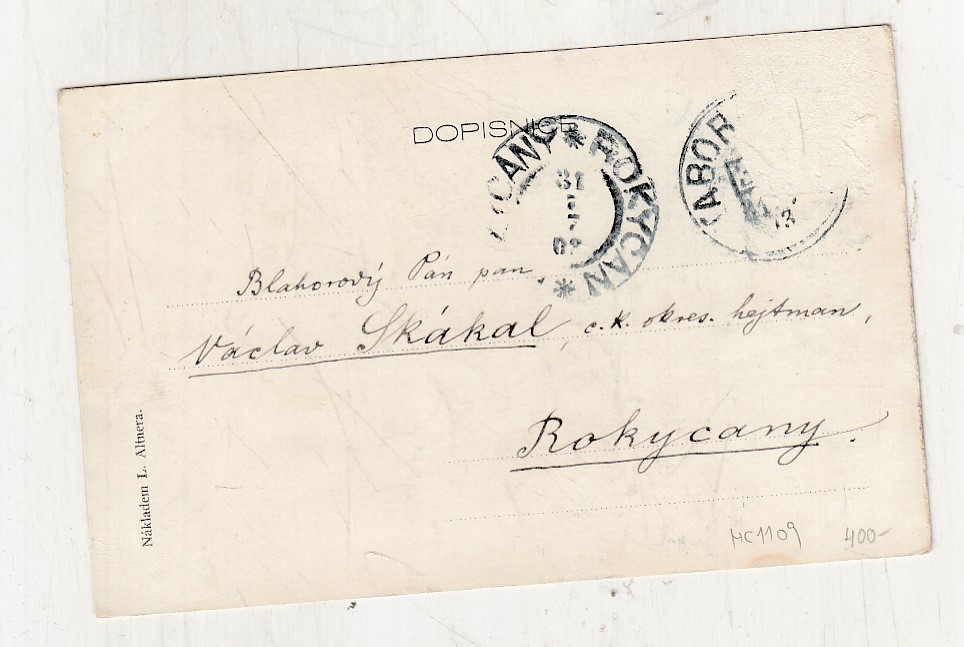 DOPISNICE
ROKYCANY * ROKYCAN *
31
TABOR
13
Blahorový Pán pan
Václav Skákal, c. k. okres. hejtman,
Rokycany.
Nákladem L. Altnera.
HC1109 400-